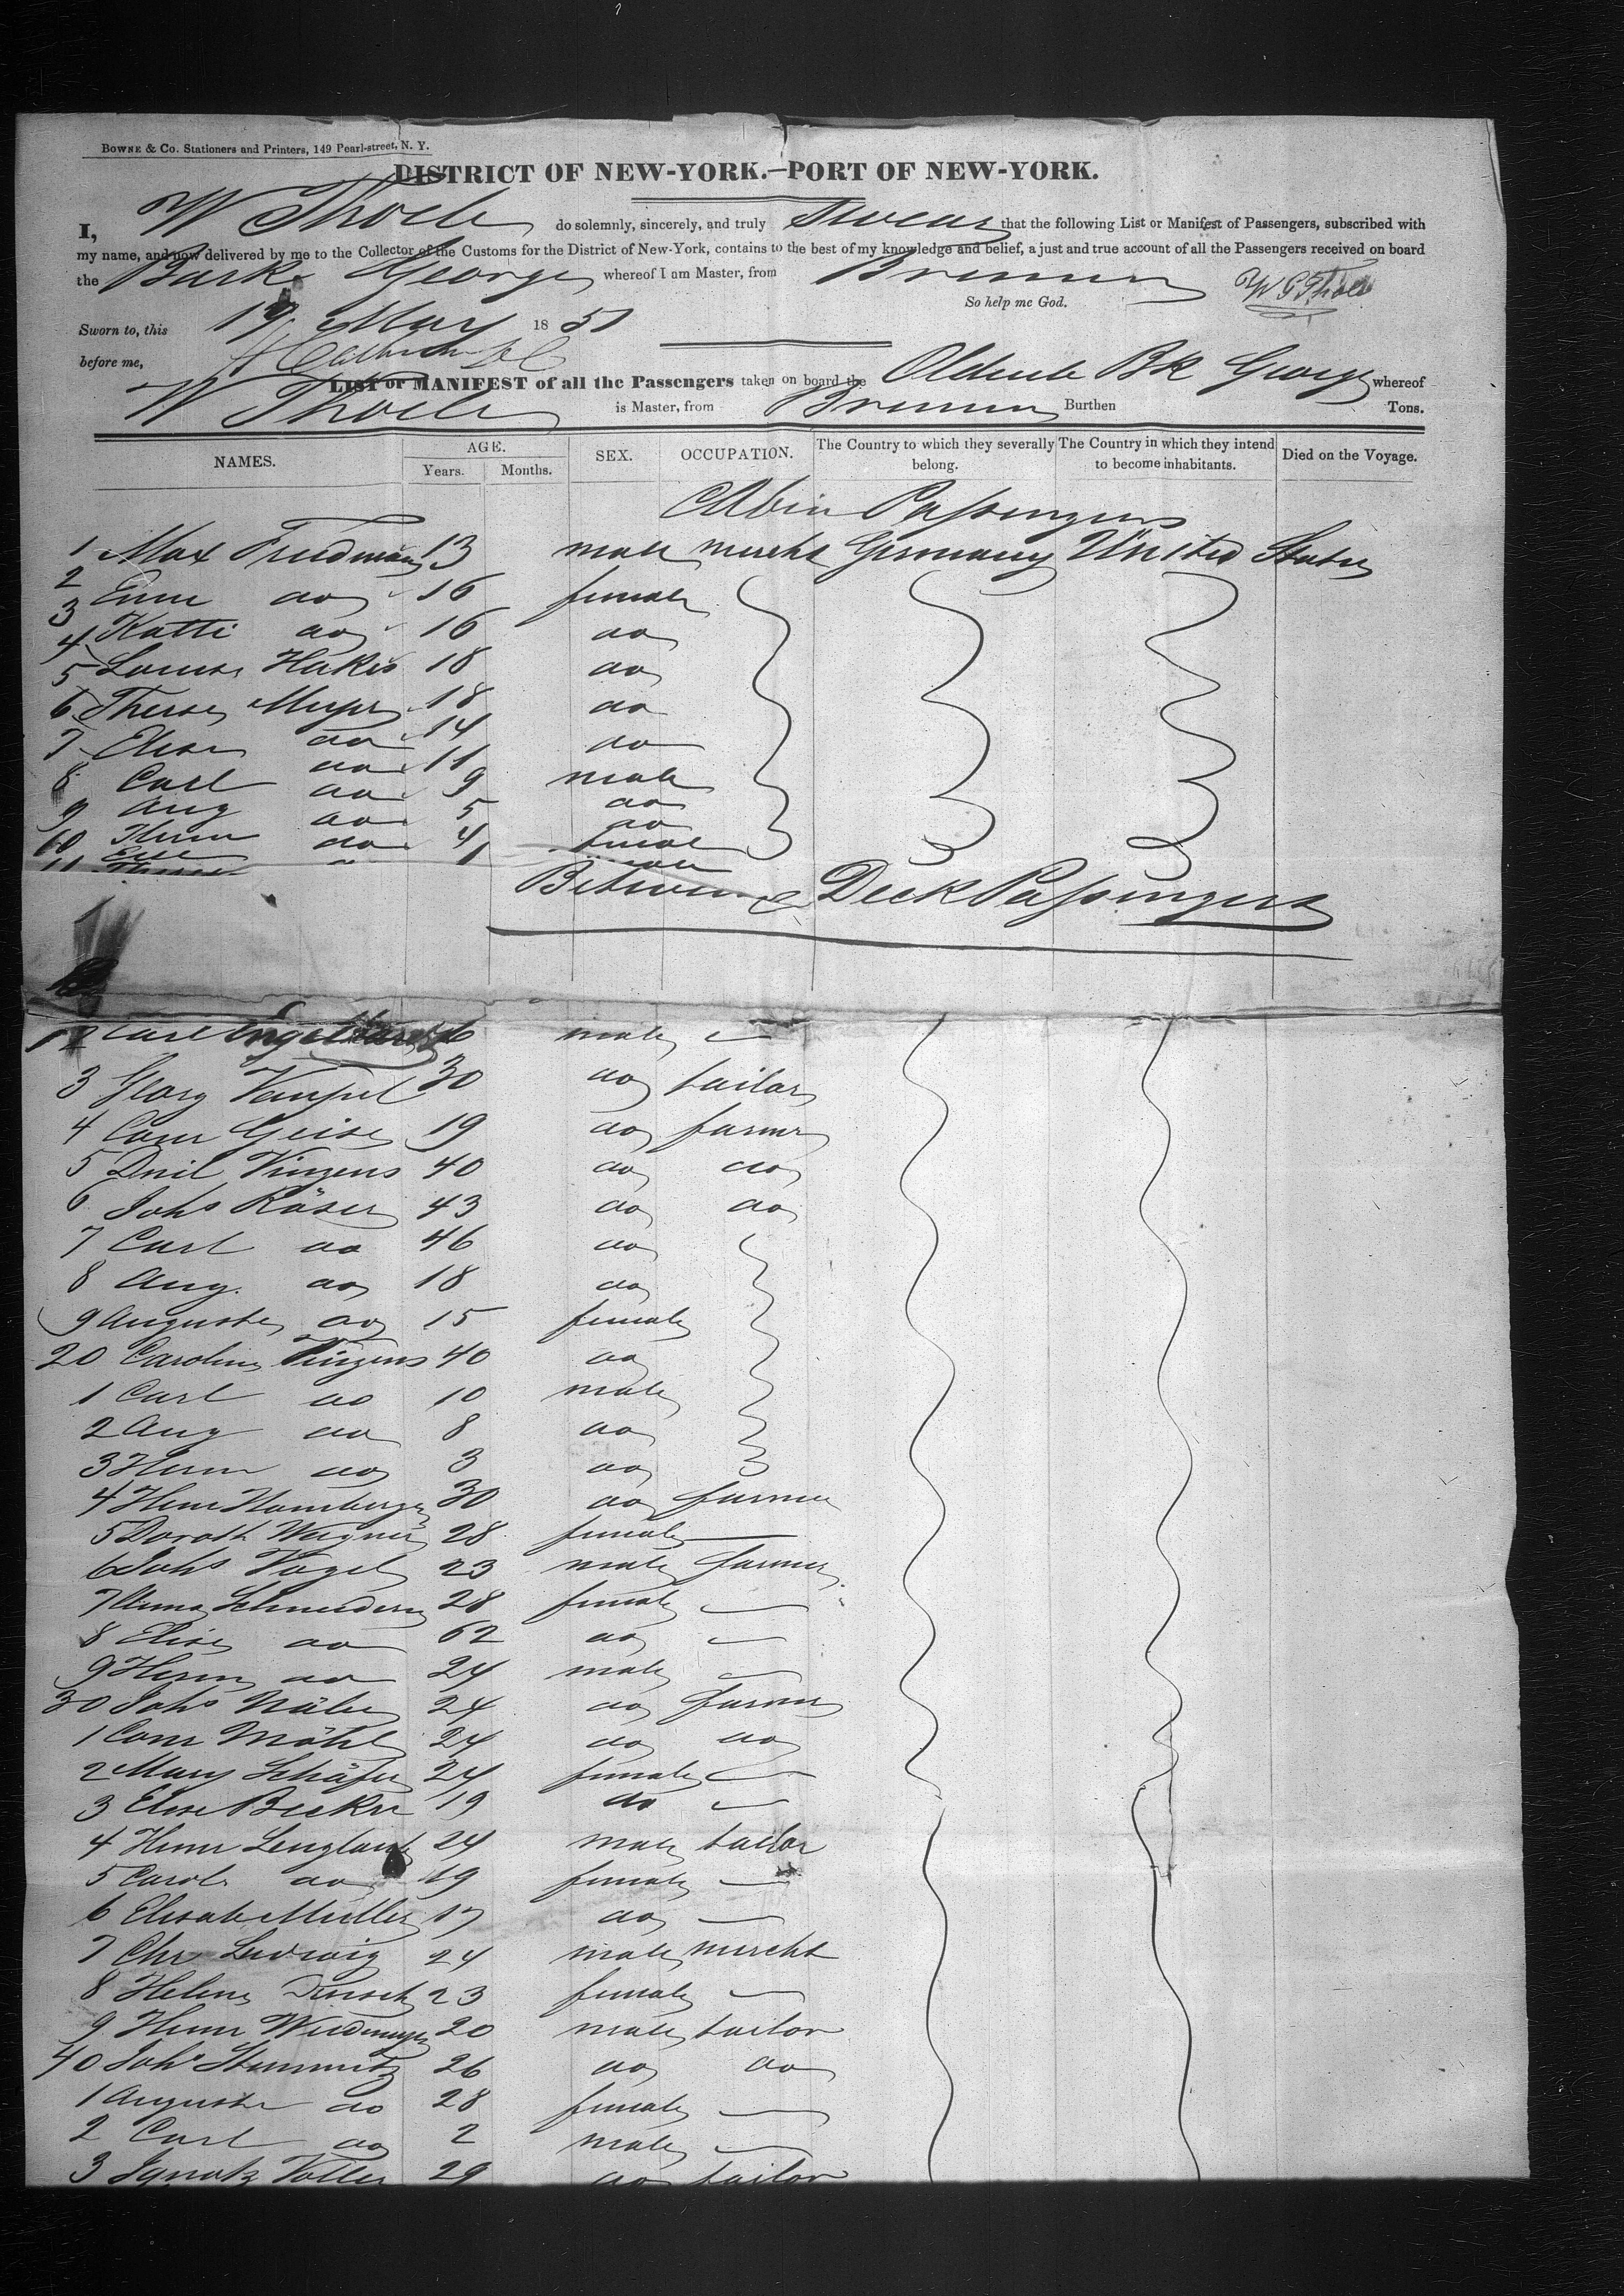 BOWNE & Co. Stationers and Printers, 149 Pearl-street, N. Y.
DISTRICT OF NEW-YORK.—PORT OF NEW-YORK.
I, W Thole do solemnly, sincerely, and truly Swear that the following List or Manifest of Passengers, subscribed with
my name, and now delivered by me to the Collector of the Customs for the District of New-York, contains to the best of my knowledge and belief, a just and true account of all the Passengers received on board
the Bark George whereof I am Master, from Bremen
So help me God. W G Thole
Sworn to, this 19 May 1851
before me,
LIST or MANIFEST of all the Passengers taken on board the Oldenb Bk George whereof
W Thole is Master, from Bremen Burthen Tons.
NAMES. AGE. Years. Months. SEX. OCCUPATION. The Country to which they severally belong. The Country in which they intend to become inhabitants. Died on the Voyage.
Cabin Passengers
1 Max Friedman 13 male mercht Germany United States
2 do 16 female
3 Katti do 16 do
4 Louise 18 do
5 Therese Meyer 18 do
6 Elise do 14 do
7 Carl do 11 male
8 Aug do 9 do
9 Herm do 5 do
10 Elise do 4 female
11 Therese
Between Deck Passengers
12 Carl Engelhard male —
3 Georg Vaupel 30 do tailor
4 Conr Geise 19 do farmer
5 Dnil Vinzens 40 do do
6 Johs Röser 43 do do
7 Carl do 46 do
8 Aug. do 18 do
9 Auguste do 15 female
20 Caroline Vinzens 40 do
1 Carl do 10 male
2 Aug do 8 do
3 Herm do 3 do
4 Henr Hamberger 30 do farmer
5 Doroth Wagner 28 female —
6 Johs Vogel 23 male farmer
7 Anna Schneider 28 female —
8 Elise do 62 do —
9 Herm do 24 male —
30 Johs Näher 24 do farmer
1 Conr Möhl 24 do do
2 Mary Schäfer 24 female —
3 Elise Becker 19 do —
4 Henr 24 male tailor
5 Carol. do 19 female —
6 Elisabe Muller 17 do —
7 Chr Ludwig 24 male mercht
8 Helene 23 female —
9 Henr Wiedmeyer 20 male tailor
40 Johs 26 do do
1 Auguste do 28 female —
2 Carl do 2 male —
3 Ignatz Voller 29 do tailor